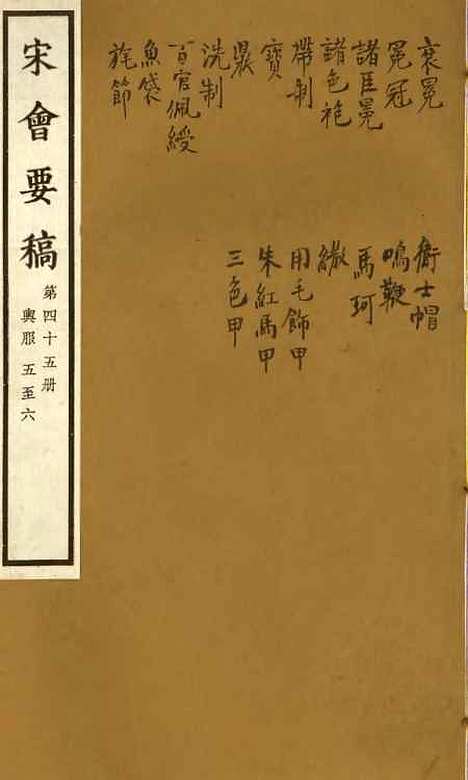 衮冕
冕冠
諸臣冕
諸色袍
帶制
寶
鼎
洗制
百官佩綬
魚袋
旄節
衛士帽
鳴鞭
馬珂
繖
用毛飾甲
朱紅馬甲
三色甲
宋會要稿
第四十五册
輿服 五至六